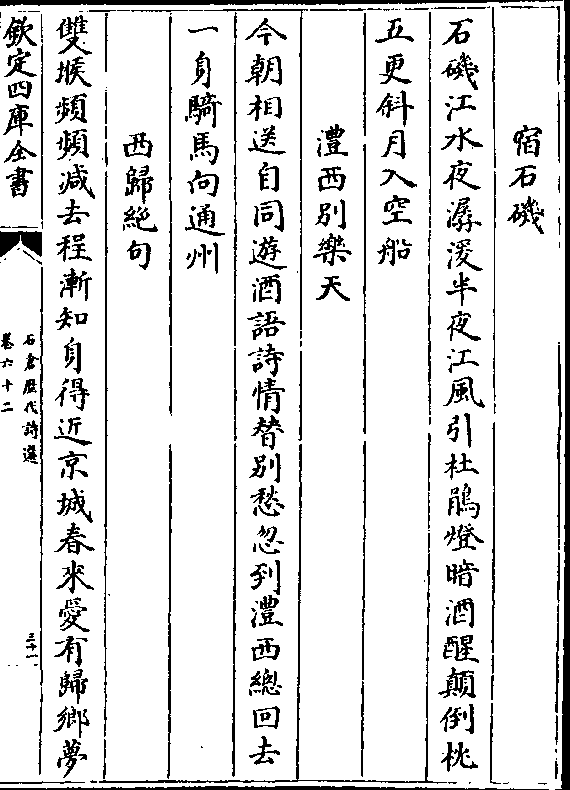 宿石磯
石磯江水夜潺湲半夜江風引杜鵑燈暗酒醒顛倒枕
五更斜月入空船
澧西別樂天
今朝相送自同遊酒語詩情替別愁忽到澧西總回去
一身騎馬向通州
西歸絶句
雙堠頻頻減去程漸知身得近京城春來愛有歸鄉夢
欽定四庫全書
石倉歷代詩選
卷六十二
三十一